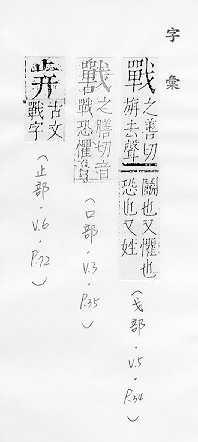 字彙
戰
之善切
旃去聲
鬭也又懼也
恐也又姓
(戈部.V.5.P.34)
之膳切音
古戰恐懼
(口部.V.3.P.35)
古文
戰字
(止部.V.6.P.72)